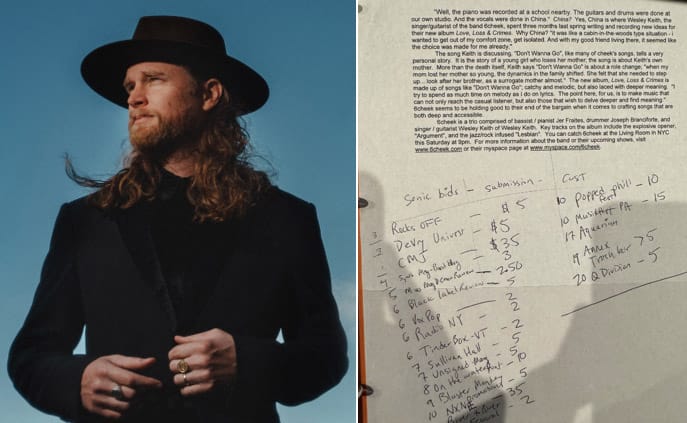 "Well, the piano was recorded at a school nearby. The guitars and drums were done at
our own studio. And the vocals were done in China." China? Yes, China is where Wesley Keith, the
singer/guitarist of the band 6cheek, spent three months last spring writing and recording new ideas for
their new album Love, Loss & Crimes. Why China? "it was like a cabin-in-the-woods type situation - i
wanted to get out of my comfort zone, get isolated. And with my good friend living there, it seemed like
the choice was made for me already."
The song Keith is discussing, "Don't Wanna Go", like many of cheek's songs, tells a very
personal story. It is the story of a young girl who loses her mother; the song is about Keith's own
mother. More than the death itself, Keith says "Don't Wanna Go" is about a role change; "when my
mom lost her mother so young, the dynamics in the family shifted. She felt that she needed to step
up... look after her brother, as a surrogate mother almost." The new album, Love, Loss & Crimes is
made up of songs like "Don't Wanna Go"; catchy and melodic, but also laced with deeper meaning. "I
try to spend as much time on melody as I do on lyrics. The point here, for us, is to make music that
can not only reach the casual listener, but also those that wish to delve deeper and find meaning."
6cheek seems to be holding good to their end of the bargain when it comes to crafting songs that are
both deep and accessible.
6cheek is a trio comprised of bassist / pianist Jer Fraites, drummer Joseph Branciforte, and
singer / guitarist Wesley Keith of Wesley Keith. Key tracks on the album include the explosive opener,
"Argument", and the jazz/rock infused "Lesbian". You can catch 6cheek at the Living Room in NYC
this Saturday at 9pm. For more information about the band or their upcoming shows, visit
www.6cheek.com or their myspace page at www.myspace.com/6cheek.
Sonic bids - submission - Cost
3 Rocks OFF - $5
3 DeVry Univers - $5
1 CMJ - $35
- 3
5 - 2.50
6 Black Label Review - 5
6 Vox Pop - 2
6 Radio NY - 2
6 Tinder Box - VT - 2
7 Sullivan Hall - 5
7 Unsigned Mag - 5
8 On the waterfront - 10
9 Bluster Monday - 5
10 NXNE - 35
- 2
10 Popped phill - 10
10 PA - 15
17 Aquarian
19 Annex
> 5
20 Q Division - 5